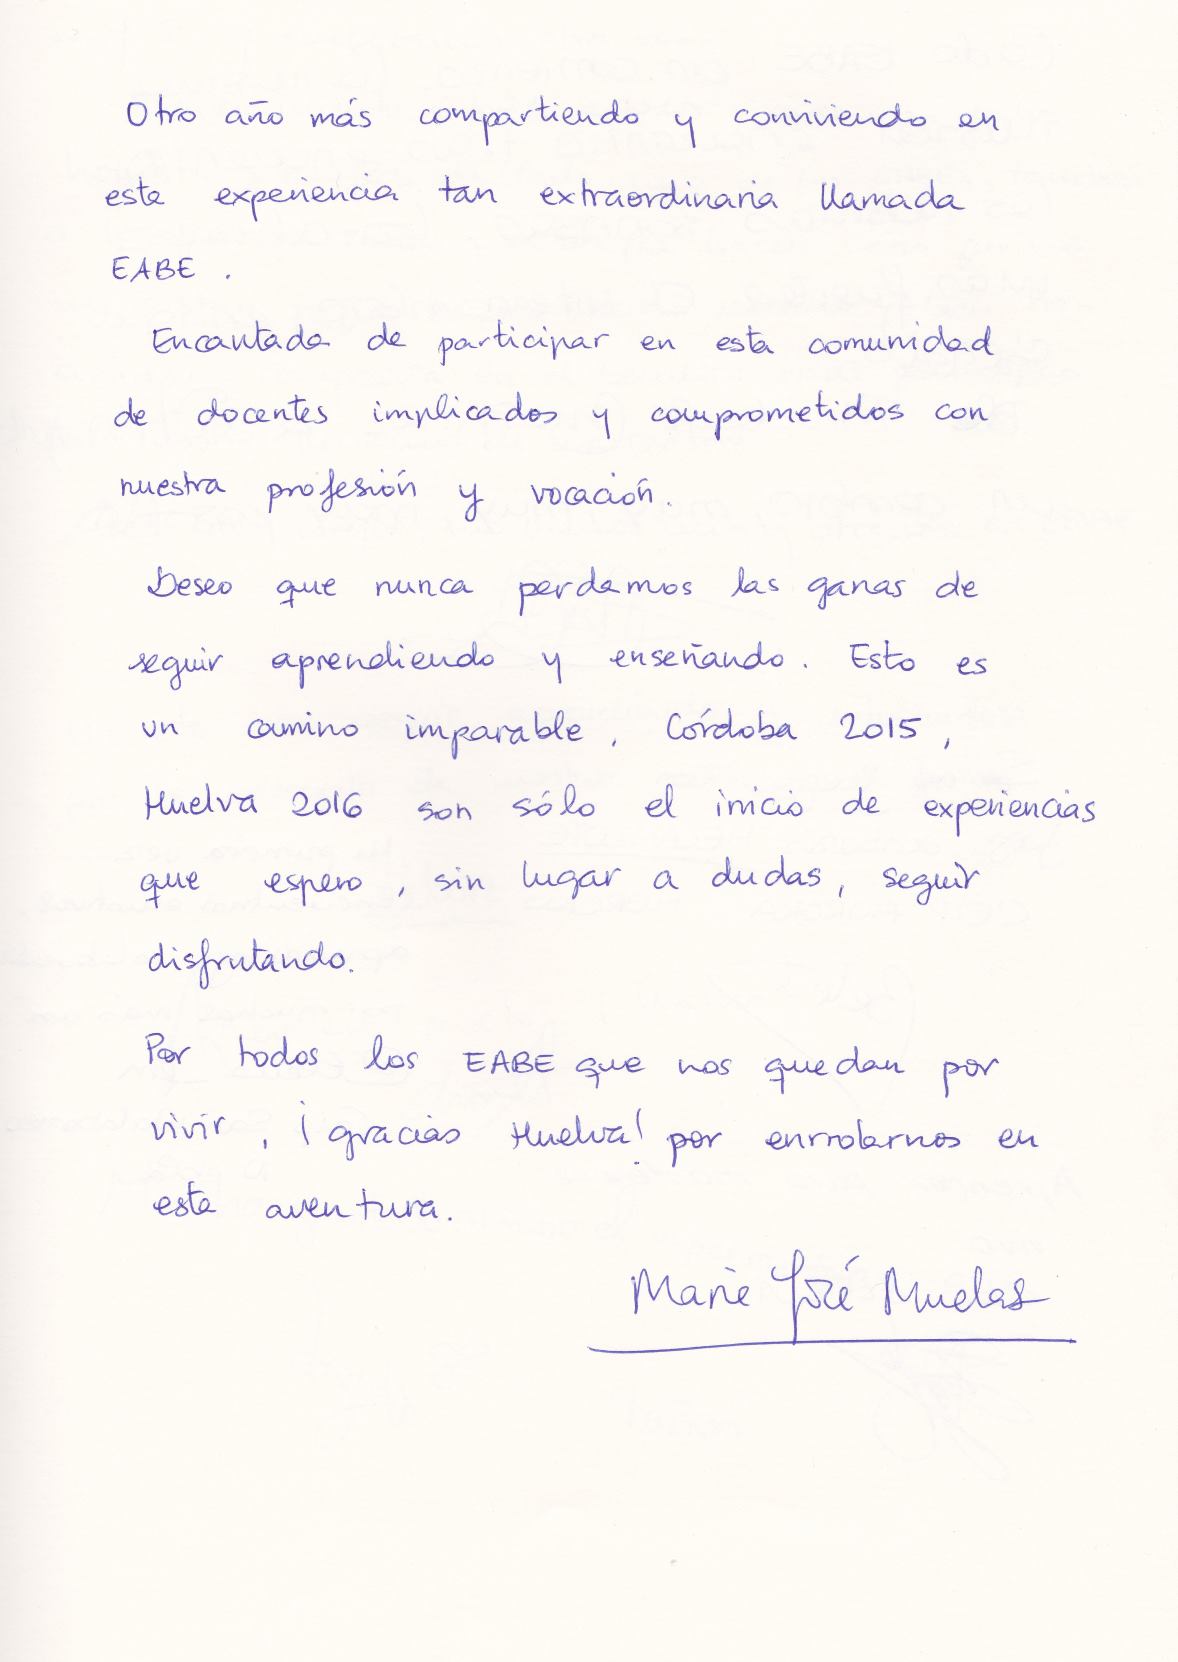 Otro año más compartiendo y conviviendo en
esta experiencia tan extraordinaria llamada
EABE .
Encantada de participar en esta comunidad
de docentes implicados y comprometidos con
nuestra profesión y vocación.
Deseo que nunca perdamos las ganas de
seguir aprendiendo y enseñando. Esto es
un camino imparable, Córdoba 2015,
Huelva 2016 son sólo el inicio de experiencias
que espero, sin lugar a dudas, seguir
disfrutando.
Por todos los EABE que nos quedan por
vivir, ¡gracias Huelva! por enrrolarnos en
esta aventura.
María José Muelas